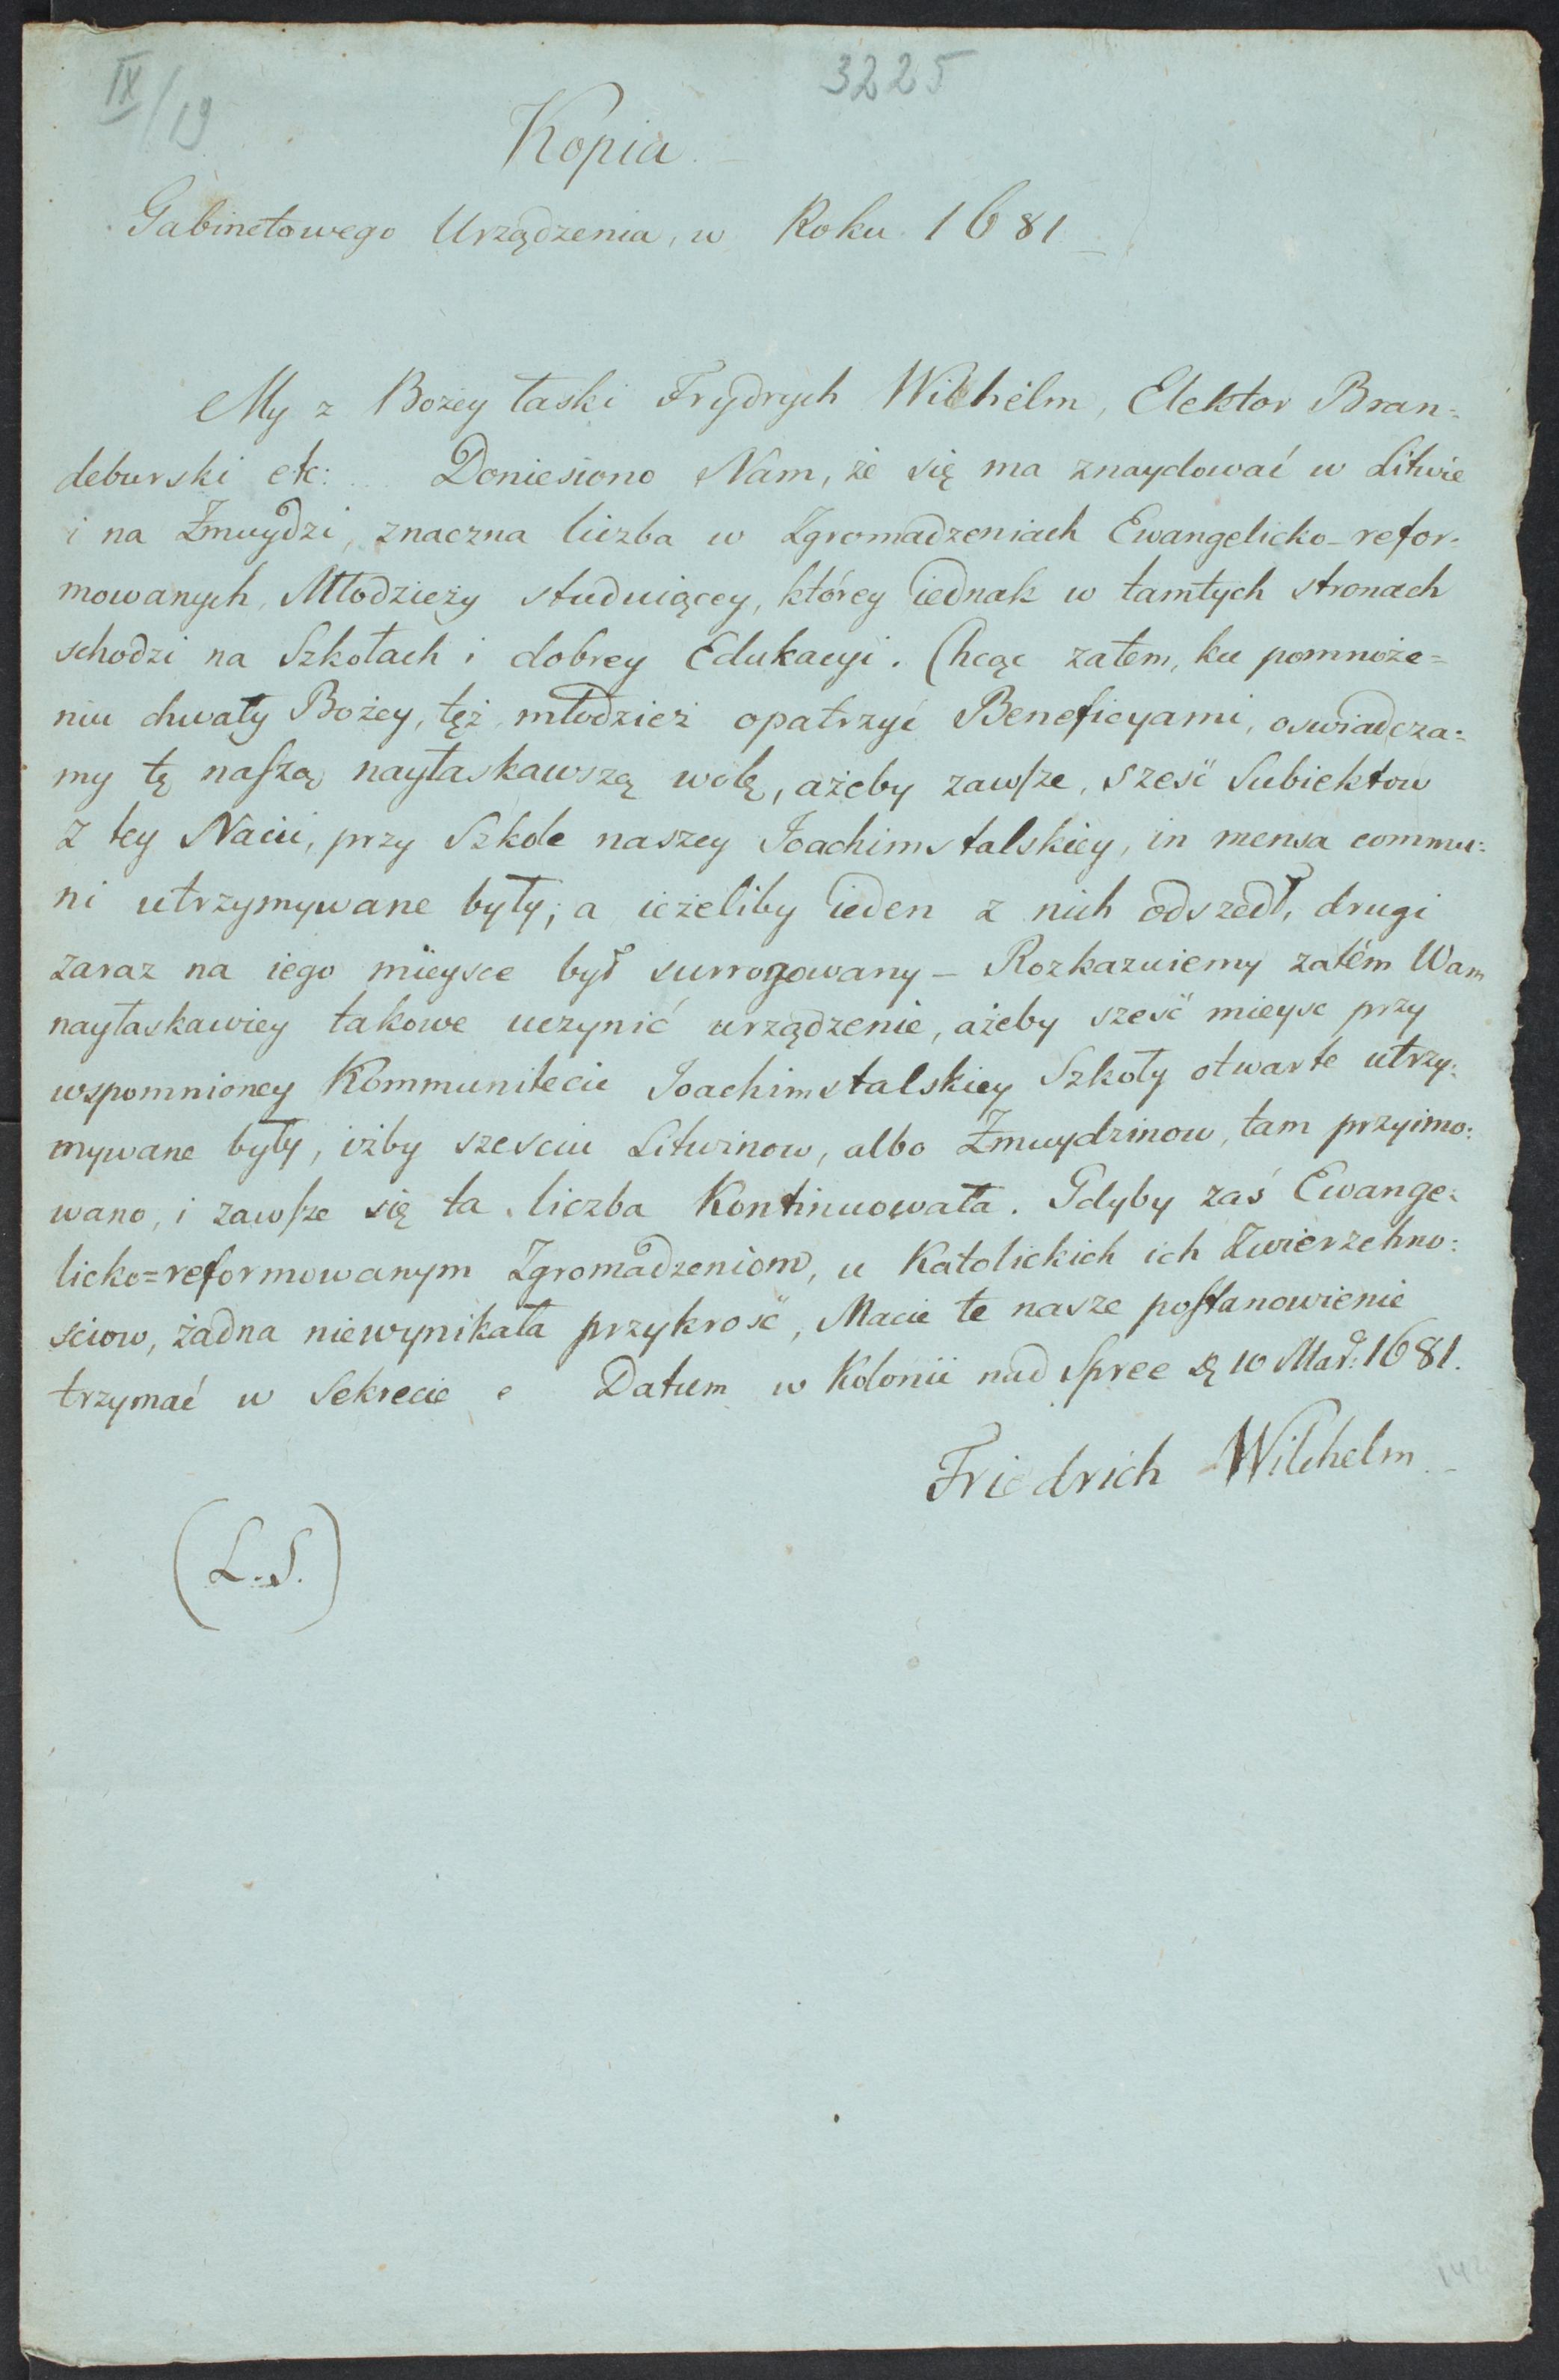 IX/19
3225
Kopia.
Gabinetowego Urządzenia, w Roku 1681
My z Bożey łaski Frydrych Wilhelm, Elektor Bran=
deburski etc: Doniesiono Nam, że się ma znaydować w Litwie
i na Żmuydzi, znaczna liczba w Zgromadzeniach Ewangelicko-refor-
mowanych, Młodzieży studuiącey, którey iednak w tamtych stronach
schodzi na Szkołach i dobrey Edukacyi. Chcąc zatem, ku pomnoże=
niu chwały Bożey, tęż młodzież opatrzyć Beneficyami, oswiadcza=
my tę naszą nayłaskawszą wolę, ażeby zawsze, sześć Subiektow
z tey Nacii, przy Szkole naszey Joachimstalskiey, in mensa commu=
ni utrzymywane były; a ieżeliby ieden z nich odszedł, drugi
zaraz na iego mieysce był surrogowany – Rozkazuiemy zatém Wam
nayłaskawiey takowe uczynić urządzenie, ażeby sześć mieysc przy
wspomnioney Kommunitecie Joachimstalskiey Szkoły otwarte utrzy:
mywane były, iżby szesciu Litwinow, albo Żmuydzinow, tam przyimo:
wano, i zawsze się ta liczba Kontinuowała. Gdyby zaś Ewange:
licko=reformowanym Zgromadzeniom, u Katolickich ich Zwierzchno:
sciow, żadna niewynikała przykrość, Macie te nasze postanowienie
trzymać w Sekrecie. Datum w Kolonii nad Spree 10 Mar: 1681.
Friedrich Wilhelm
(L.S.)